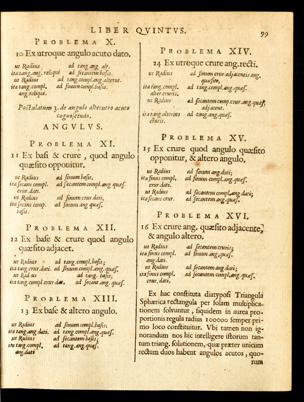 LIBER QVINTVS.
99
PROBLEMA X.
10 Ex utroque angulo acuto dato.
ut Radius ad tang. ang. alt.
ita tang. ang. reliqui ad secantem basis.
ut Radius ad tang. compl. ang. alterius.
ita tang. compl. ad sinum compl. basis.
ang. reliqui.
Postulatum 3. de angulo alterutro acuto
cognoscendo.
ANGVLVS.
PROBLEMA XI.
11 Ex basi & crure, quod angulo
quæsito opponitur.
ut Radius ad sinum basis;
ita secans compl. ad secantem compl. ang. quæs.
crur. dati.
ut Radius ad sinum crur. dati,
ita secans comp. ad sinum ang. quæs.
basis.
PROBLEMA XII.
12 Ex basi & crure quod angulo
quæsito adjacet.
ut Radius ad tang. compl. basis;
ita tang. crur. dati ad sinum compl. ang. quæs.
ut Radius ad tang. basis;
ita tang. compl. crur. dat. ad secant. ang. quæs.
PROBLEMA XIII.
13 Ex basi & altero angulo.
ut Radius ad sinum compl. basis;
ita tang. ang. dati ad tang. compl. ang. quæs.
ut Radius ad secantem basis;
ita tang. compl. ad tang. ang. quæs.
ang. dati
PROBLEMA XIV.
24 Ex utroque crure ang. recti.
ut Radius ad sinum crur. adjacentis ang.
quæsito,
ita tang. compl. ad tang. compl. ang. quæs.
alter. cruris.
ut Radius ad secantem comp. crur. ang. quæs.
adjacent.
ita tang. alterius ad tang. ang. quæs.
cruris.
PROBLEMA XV.
15 Ex crure quod angulo quæsito
opponitur, & altero angulo,
ut Radius ad secant. ang. dati;
ita sinus compl. ad sinum compl. ang. quæs.
crur. dat.
ut Radius ad secantem compl. ang. dati;
ita secans crur. ad secant. ang. quæs.
PROBLEMA XVI.
16 Ex crure ang. quæsito adjacente,
& altero angulo.
ut Radius ad secantem cruris;
ita sinus compl. ad sinum ang. quæs.
ang. dati
ut Radius ad secantem ang. dati;
ita sinus compl. ad secantem compl. ang. quæs.
crur. dati,
Ex hac constituta diatyposi Trianguli
Sphærica rectangula per solam multiplica-
tionem solvuntur, siquidem in aurea pro-
portionis regula radius 100000 semper pri-
mo loco constituitur. Vbi tamen non ig-
norandum nos hic intelligere istorum tan-
tum triang. solutionem, quæ præter unicum
rectum duos habent angulos acutos, quo-
rum